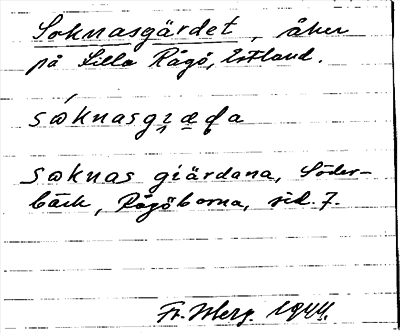 Soknasgärdet, åker
på Lilla Rågö, Estland.
søknasgi̯æḍa
søknas giärdana, Söder-
bäck, Rågöborna, sid. 7.
1944.